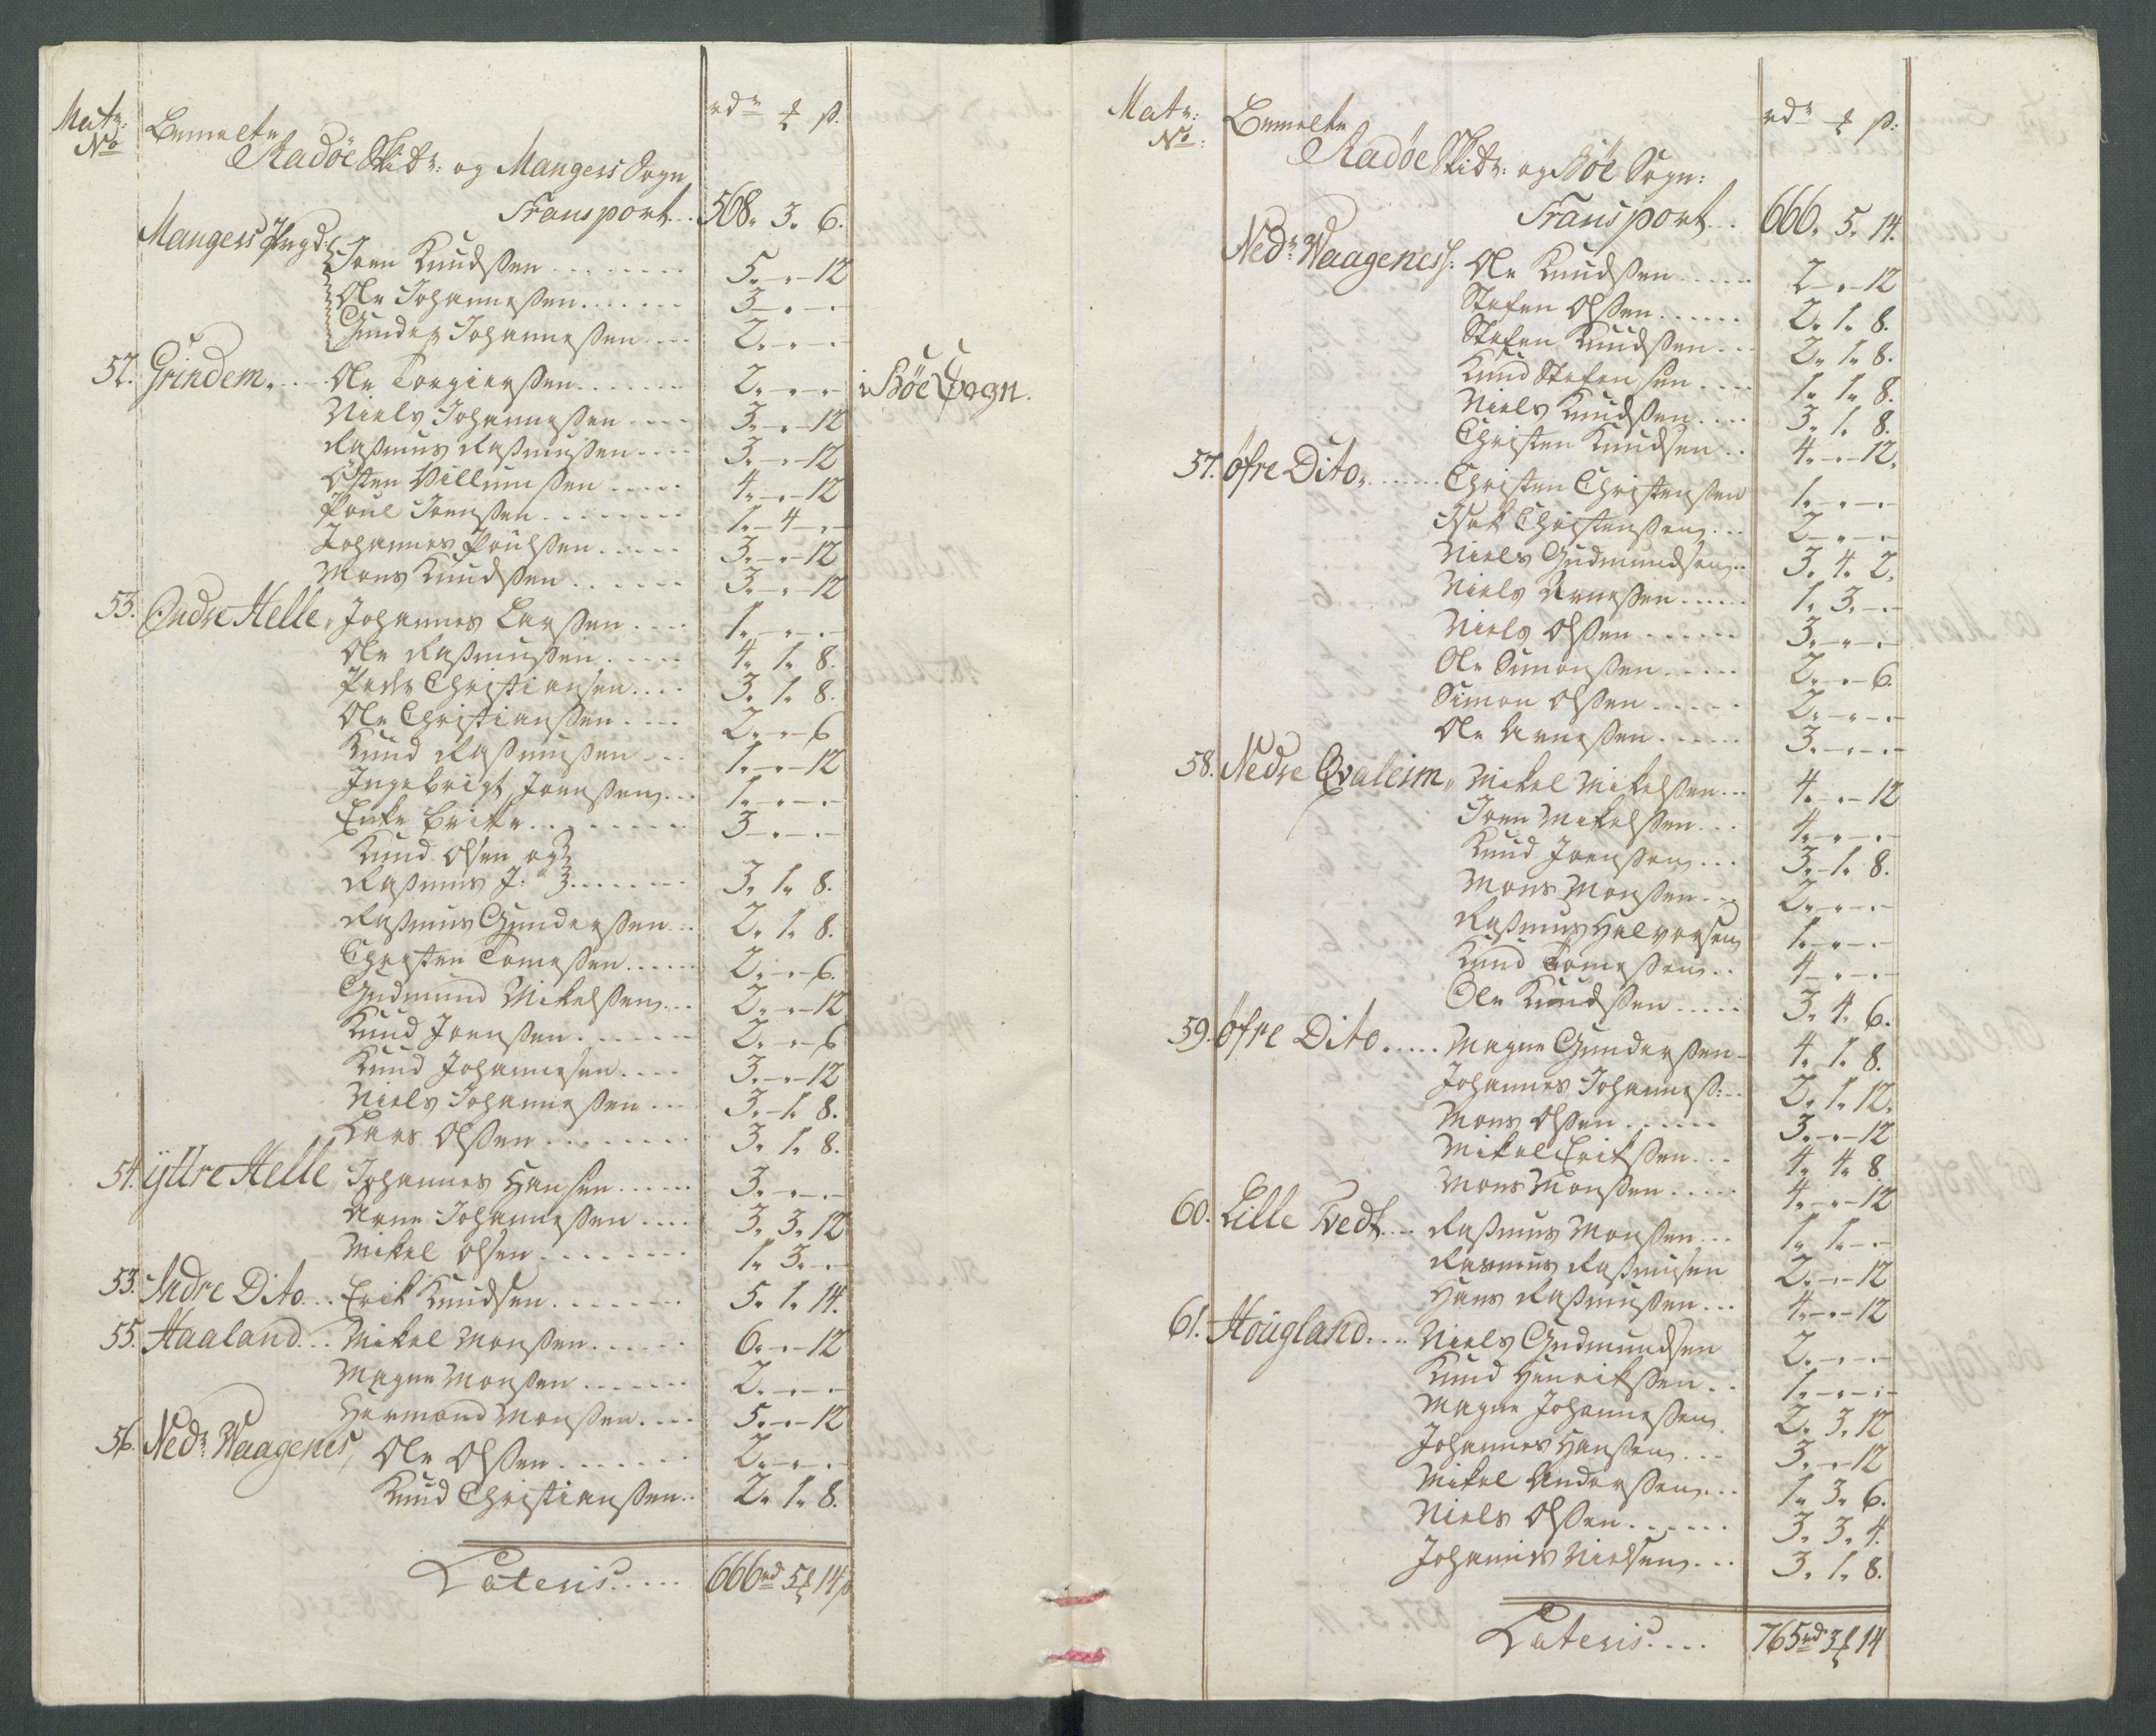 Matr: No Bemelte rdr ₰ ß.
Radöe Skibr: og Mangers Sogn
Transport... 568. 3. 6.
Mangers Prgd: Joen Knudsen........ 5. - " - 12
Ole Johannesen....... 3 - " -
Gunder Johannesen.... 2. - " -
52. Grindem... Ole Torgiersen....... 2. - " - i Böe Sogn.
Niels Johannesen.... 3. - " - 12
Rasmus Rasmusen.... 3. - " - 12
Östen Villumsen..... 4. - " - 12
Poul Joensen........ 1. - 4 - " -
Johannes Poulsen..... 3. - " - 12
Mons Knudsen...... 3. - " - 12
53. Indre Helle, Johannes Larsen.... 1. - " -
Ole Rasmusen..... 4. 1. 8.
Peder Christiansen.... 3. 1. 8.
Ole Christiansen.... 2. - " - 6
Knud Rasmusen... 1. - " - 12
Ingebrigt Joensen... 1. - " -
Enke Britte........ 3 - " -
Knud Olsen og
Rasmus J: ....... 3. 1. 8.
Rasmus Gundersen.. 2. 1. 8.
Christen Tomesen..... 2. - " - 6.
Gudmund Mikelsen... 2. - " - 12
Knud Joensen....... 2. - " - 6
Knud Johannesen.... 3. - " - 12
Niels Johannesen... 3. - 1. 8.
Lars Olsen........ 3. 1. 8.
54. ÿttre Helle Johannes Hansen...... 3. - " -
Arne Johannesen.... 3. 3. 12
Mikel Olsen........ 1. 3. -
53. Indre Dito... Erik Knudsen....... 5. 1. 14.
55. Haaland... Mikel Monsen...... 6. - " - 12
Magne Monsen....... 2. - " -
Hermand Monsen.... 5. - " - 12
56. Nedr Waagenes, Ole Olsen....... 2. - " -
Knud Christiansen.. 2. 1. 8.
Lateris..... 666rd 5₰ 14ß
Matr: No: Bemelte rdr ₰ ß:
Radöe Skibr: og Böe Sogn:
Transport... 666. 5. 14.
Nedr Waagenes: Ole Knudsen..... 2 - " - 12
Stefen Olsen...... 2. 1. 8.
Stefen Knudsen... 2. 1. 8.
Knud Stefensen.... 1. 1. 8.
Niels Knudsen.... 3. 1. 8.
Christen Knudsen.. 4. - " - 12.
57. Øfre Dito....... Christen Christensen 1. - " -
Isak Christensen... 2 - " -
Niels Gudmundsen.. 3. 4. 2.
Niels Arnesen..... 1. 3. -
Niels Olsen...... 3. - " -
Ole Simonsen..... 2. - " - 6.
Simon Olsen..... 2. - " -
Ole Arnesen..... 3. - " -
58. Nedre Qvaleim, Mikel Mikelsen... 4. - " - 12
Joen Mikelsen... 4. - " -
Knud Joensen... 3. - 1. 8.
Mons Monsen... 2. - " -
Rasmus Halvorsen 1. - " -
Knud Tomesen.. 4 - " -
Ole Knudsen..... 3. 4. 6.
59. Øfre Dito..... Magne Gundersen - 4. 1. 8.
Johannes Johannes:.. 2. 1. 12.
Mons Olsen...... 3. - " - 12
Mikel Eriksen... 4. 4. 8
Mons Monsen..... 4. - " - 12
60. Lille Tvedt.... Rasmus Monsen... 1. 1. -
Rasmus Rasmusen 2. - " - 12
Hans Rasmusen... 4. - " - 12
61. Hougland.... Niels Gudmundsen 2. - " -
Knud Henriksen.. 1. - " -
Magne Johannesen 2. 3. 12
Johannes Hansen... 3. - " - 12
Mikel Andersen... 1. 3. 6.
Niels Olsen...... 3. 3. 4.
Johannes Nielsen... 3. 1. 8.
Lateris.... 765rd 3₰ 14